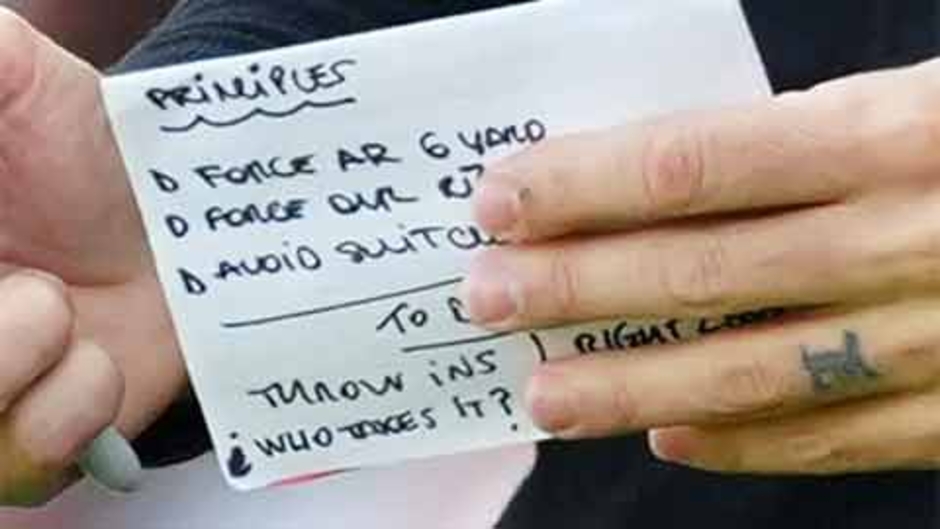 PRINCIPLES
D FORCE AR 6 YARD
D FORCE OUR
D AVOID SWITCH
TO
THROW INS ) RIGHT
¿ WHO TAKES IT?